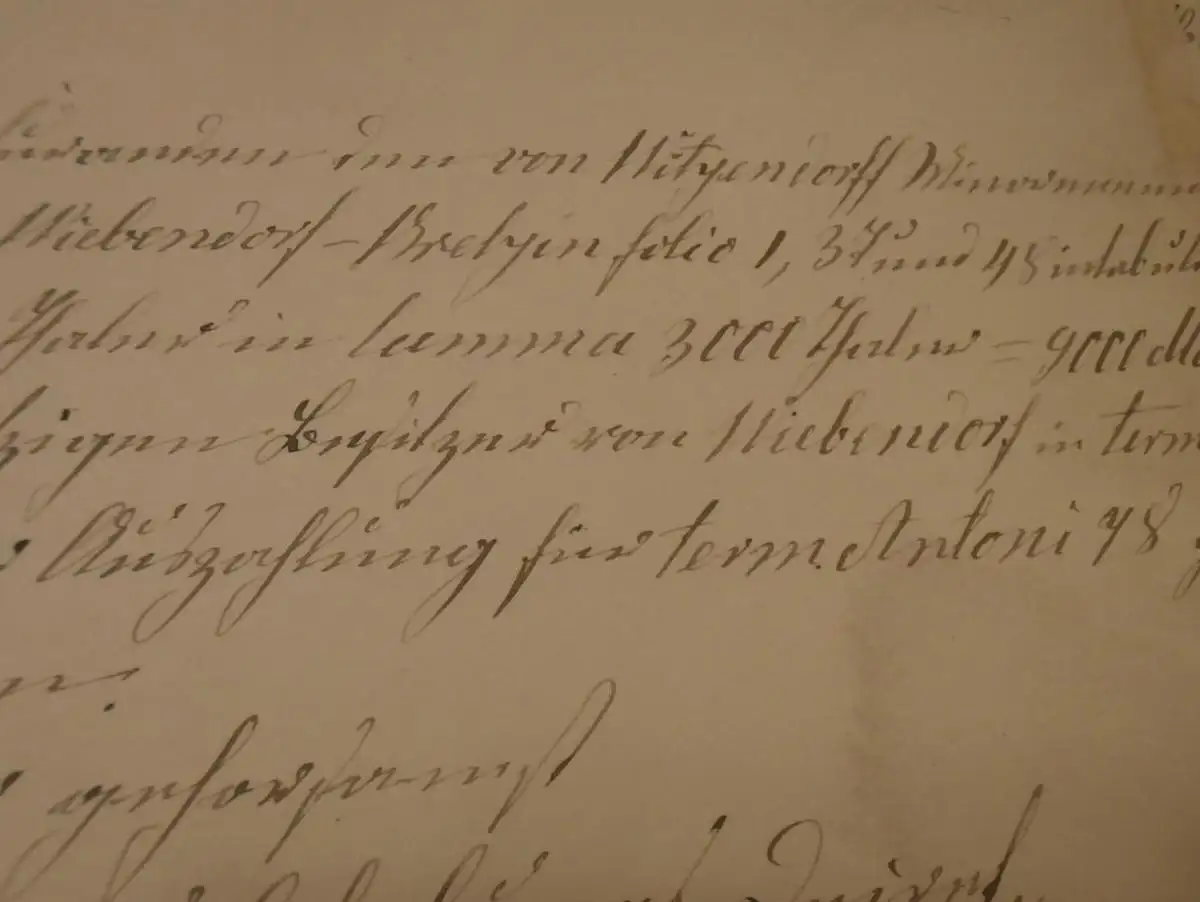 Curanden den von Witzendorff Minorennen
Wiebendorf-Bretzin folio 1, 37 und 45 intabul
Thaler in Summa 3000 Thaler = 9000 M
zigen Besitzer von Wiebendorf in term
Auszahlung für term. Antoni 78
en.
gehorsamst